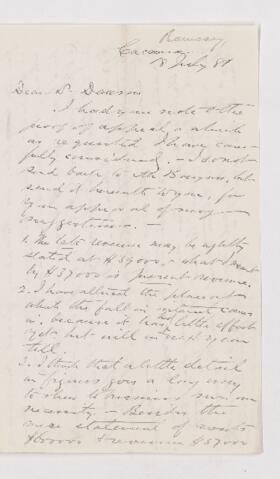 Ramsay,
Cacouna
8 July 81
Dear Dr Dawson
I had your note & the
proof of appeal, which
as requested I have care-
fully considered. — I do not
send back to Mr Baynes, but
send it herewith to you, for
your approval of my
suggestions. —
1. The late revenue may be rightly
stated at $39000 & what I meant
by $37000 is present revenue.
2. I have altered the place at
which the fall in interest comes
in, because it has little effect
yet but will in next year
tell.
3. I think that a little detail
in figures goes a long way
to show to business men our
necessity — Besides the
mere statement of wants
& revenue $37000